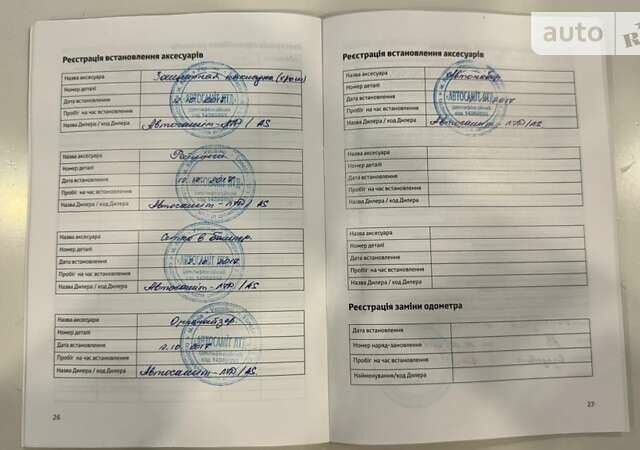 auto
Реєстрація встановлення аксесуарів
Назва аксесуара
Номер деталі
Дата встановлення
Пробіг на час встановлення
Назва Дилера / код Дилера Автосаміт-ЛТД / AS
АВТОСАМІТ ЛТД
Назва аксесуара
Номер деталі
Дата встановлення
Пробіг на час встановлення
Назва Дилера / код Дилера Автосаміт-ЛТД / AS
Назва аксесуара Сетка в бампер.
Номер деталі
Дата встановлення
Пробіг на час встановлення
Назва Дилера / код Дилера Автосаміт-ЛТД / AS
Назва аксесуара Органайзер.
Номер деталі
Дата встановлення 12.10.2017
Пробіг на час встановлення
Назва Дилера / код Дилера Автосаміт-ЛТД / AS.
26
Реєстрація встановлення аксесуарів
Назва аксесуара
Номер деталі
Дата встановлення
Пробіг на час встановлення
Назва Дилера / код Дилера Автосаміт-ЛТД / AS
АВТОСАМІТ ЛТД
Назва аксесуара
Номер деталі
Дата встановлення
Пробіг на час встановлення
Назва Дилера / код Дилера
Назва аксесуара
Номер деталі
Дата встановлення
Пробіг на час встановлення
Назва Дилера / код Дилера
Реєстрація заміни одометра
Дата встановлення
Номер наряд-замовлення
Пробіг на час встановлення
Найменування/код Дилера
27